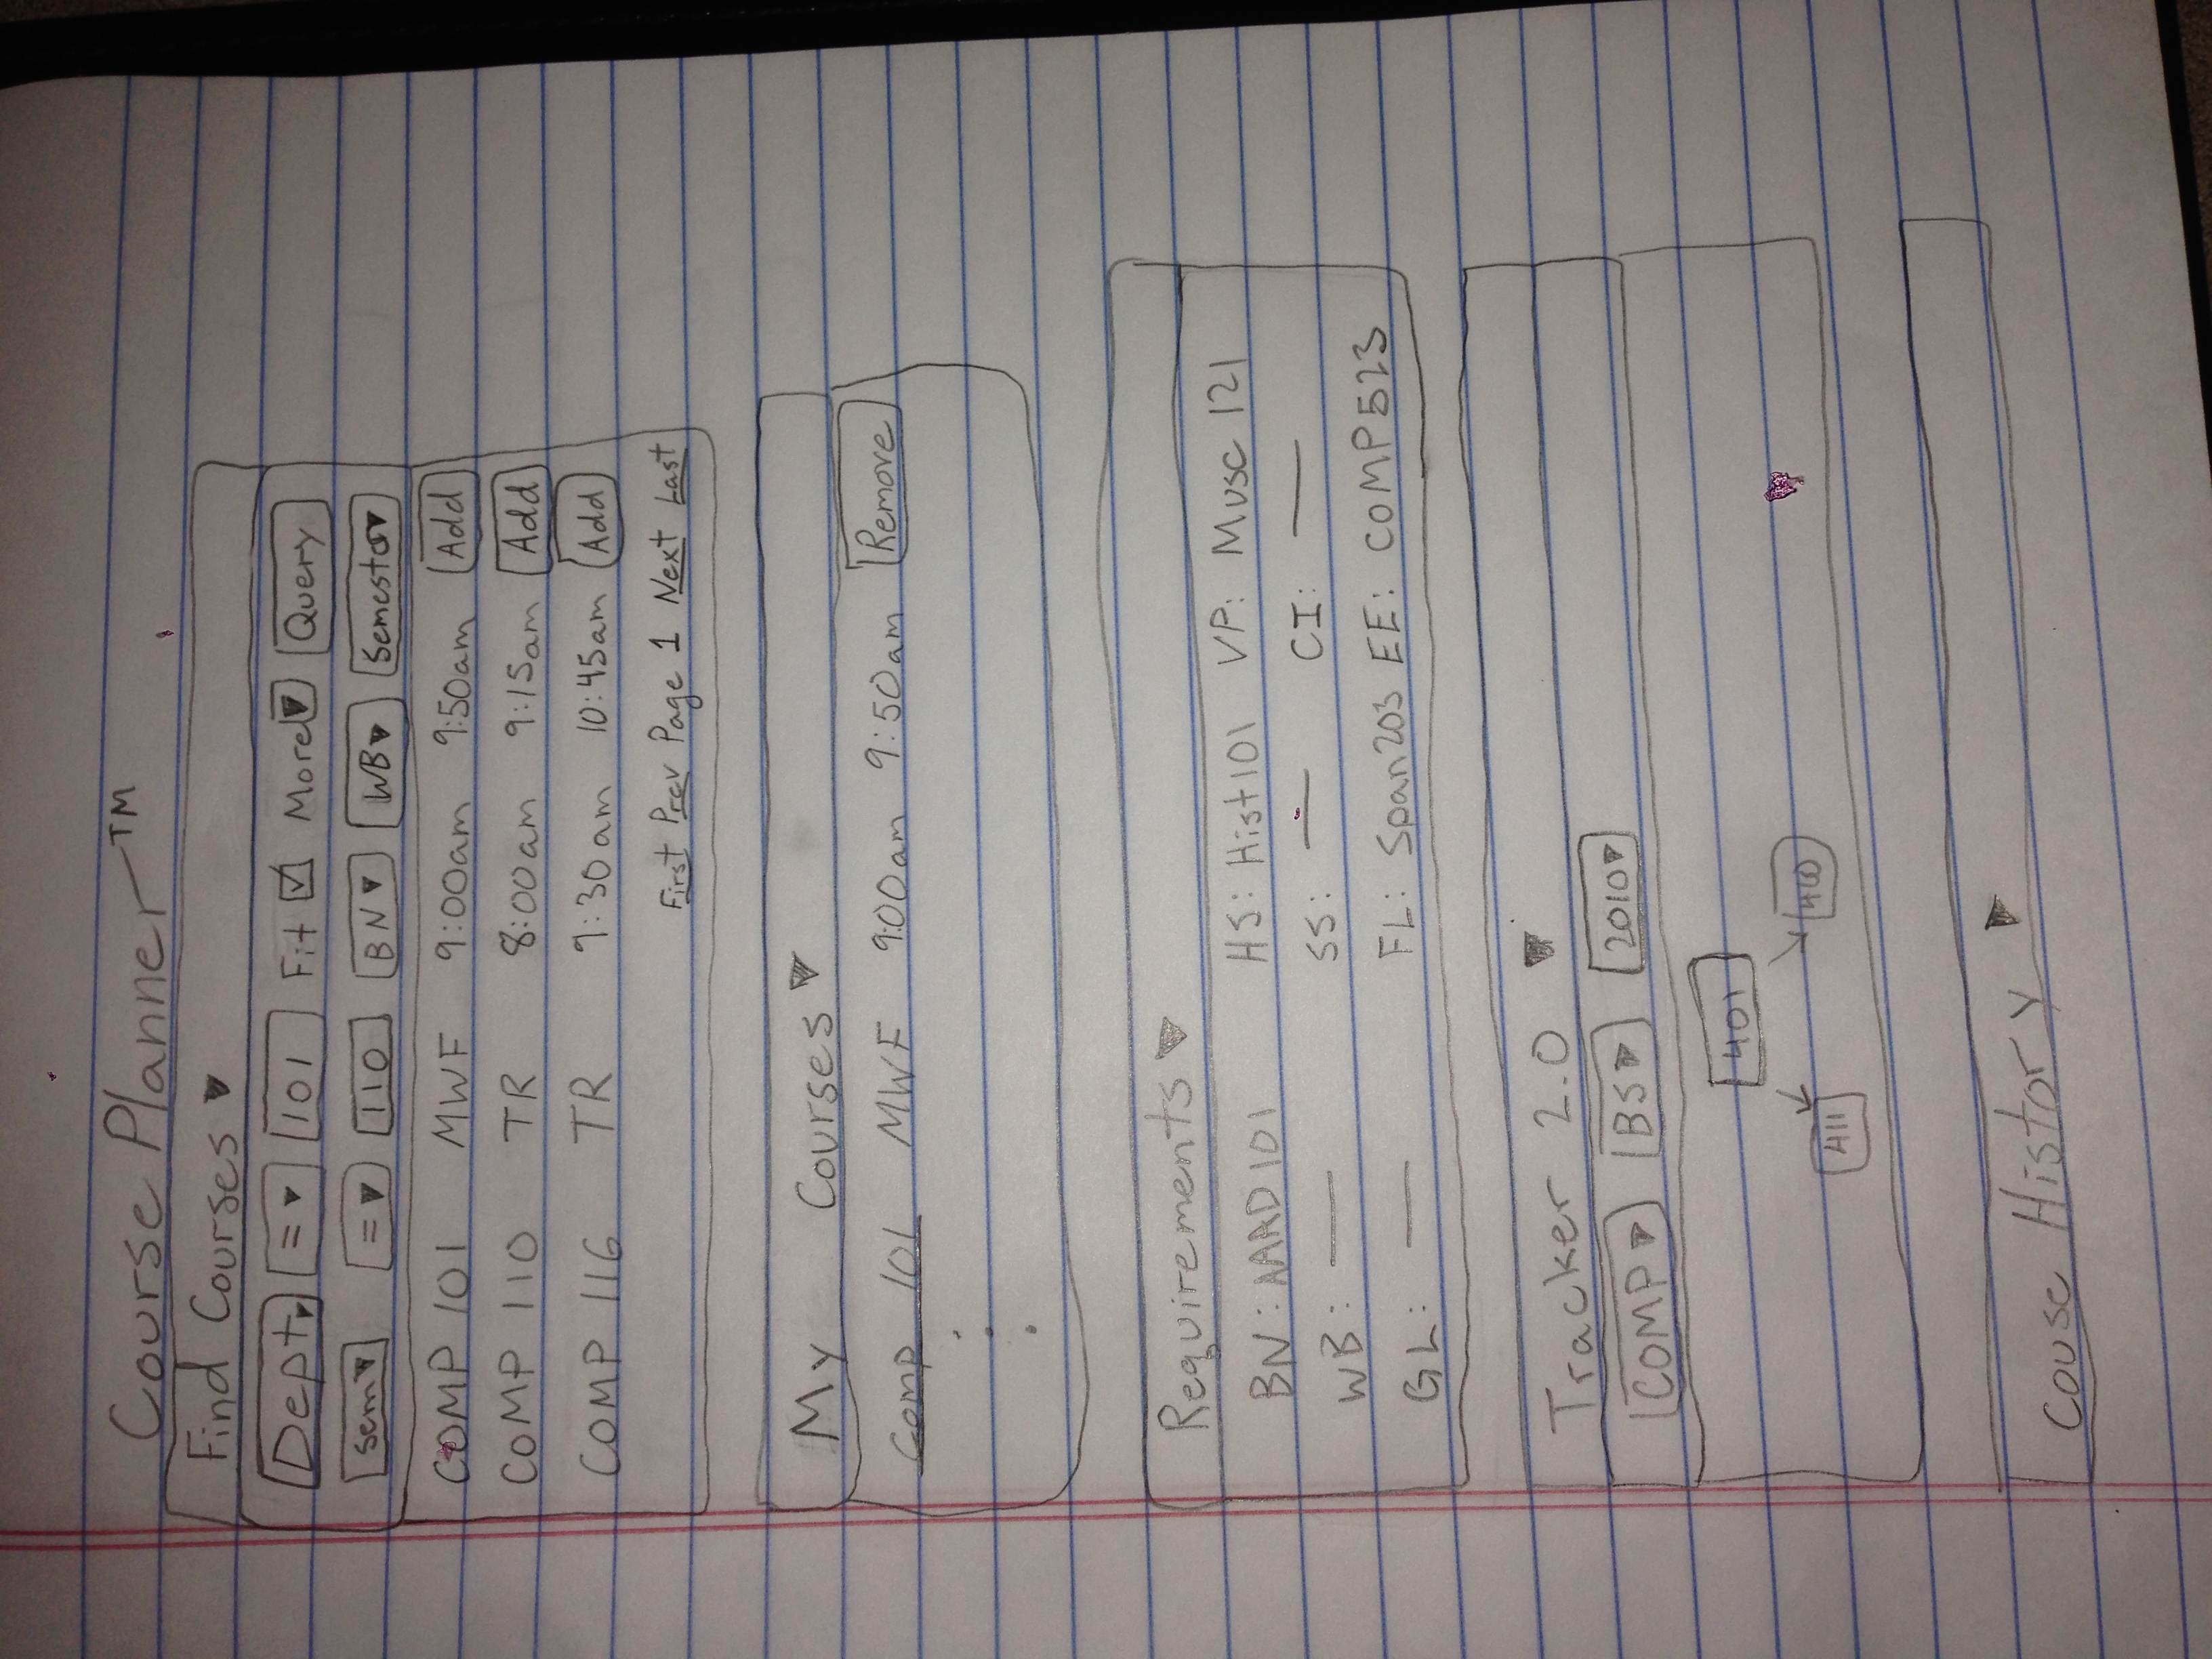 Course Planner™
Find Courses ▼
Dept▼ =▼ 101 Fit ☑ More▼ Query
Sem▼ =▼ 110 BN▼ WB▼ Semester▼
COMP 101 MWF 9:00am 9:50am Add
COMP 110 TR 8:00am 9:15am Add
COMP 116 TR 9:30am 10:45am Add
First Prev Page 1 Next Last
My Courses ▼
Comp 101 MWF 9:00am 9:50am Remove
Requirements ▼
BN: AAAD 101 HS: Hist 101 VP: Musc 121
WB: — SS: — CI: —
GL: — FL: Span 203 EE: COMP 523
Tracker 2.0 ▼
COMP▼ BS▼ 2010▼
401
411 410
Couse History ▶